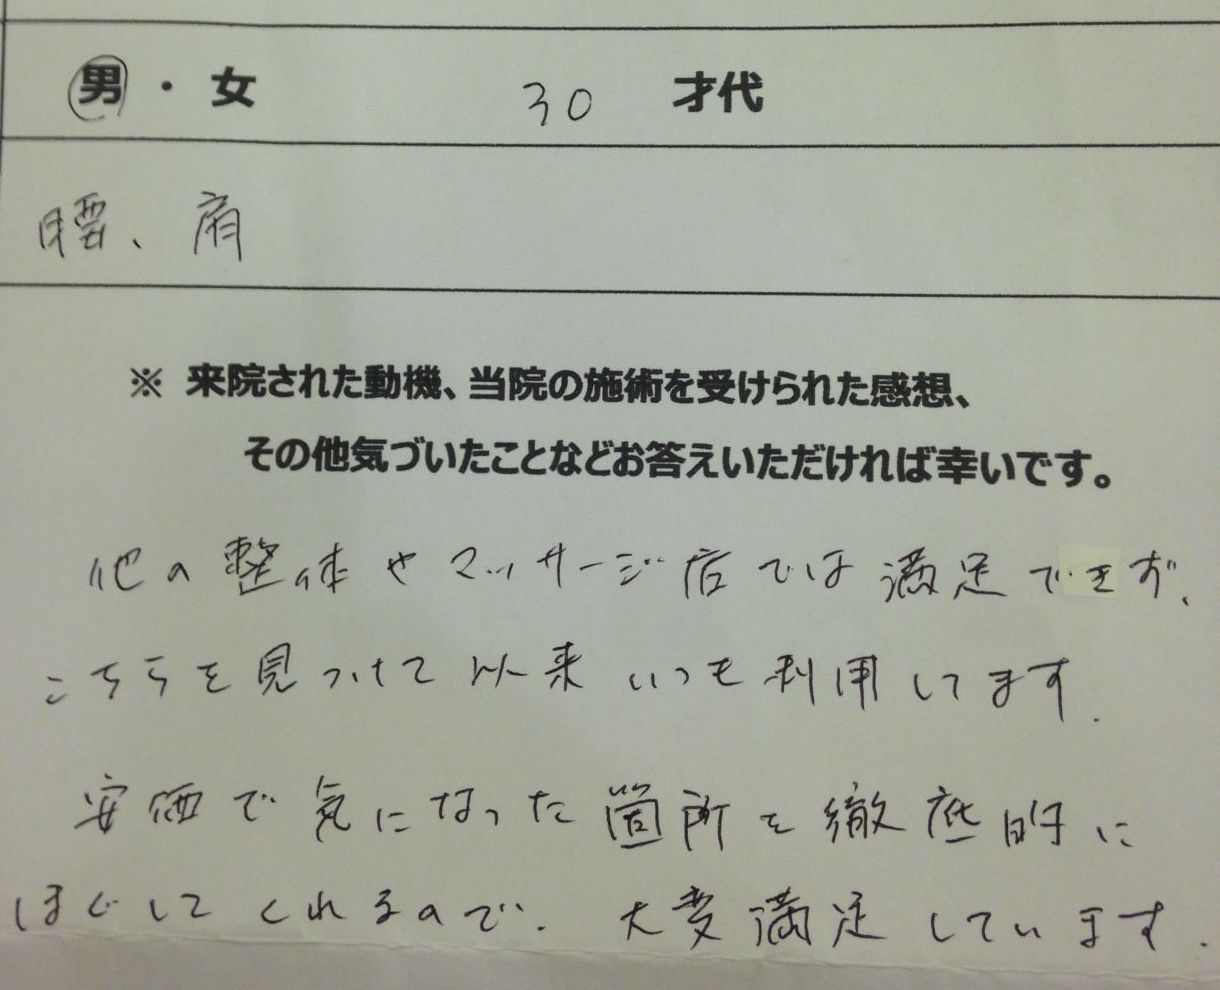 男・女 30 才代
腰、肩
※ 来院された動機、当院の施術を受けられた感想、
その他気づいたことなどお答えいただければ幸いです。
他の整体やマッサージ店では満足できず、
こちらを見つけて以来いつも利用してます.
安価で気になった箇所を徹底的に
ほぐしてくれるので.大変満足しています.